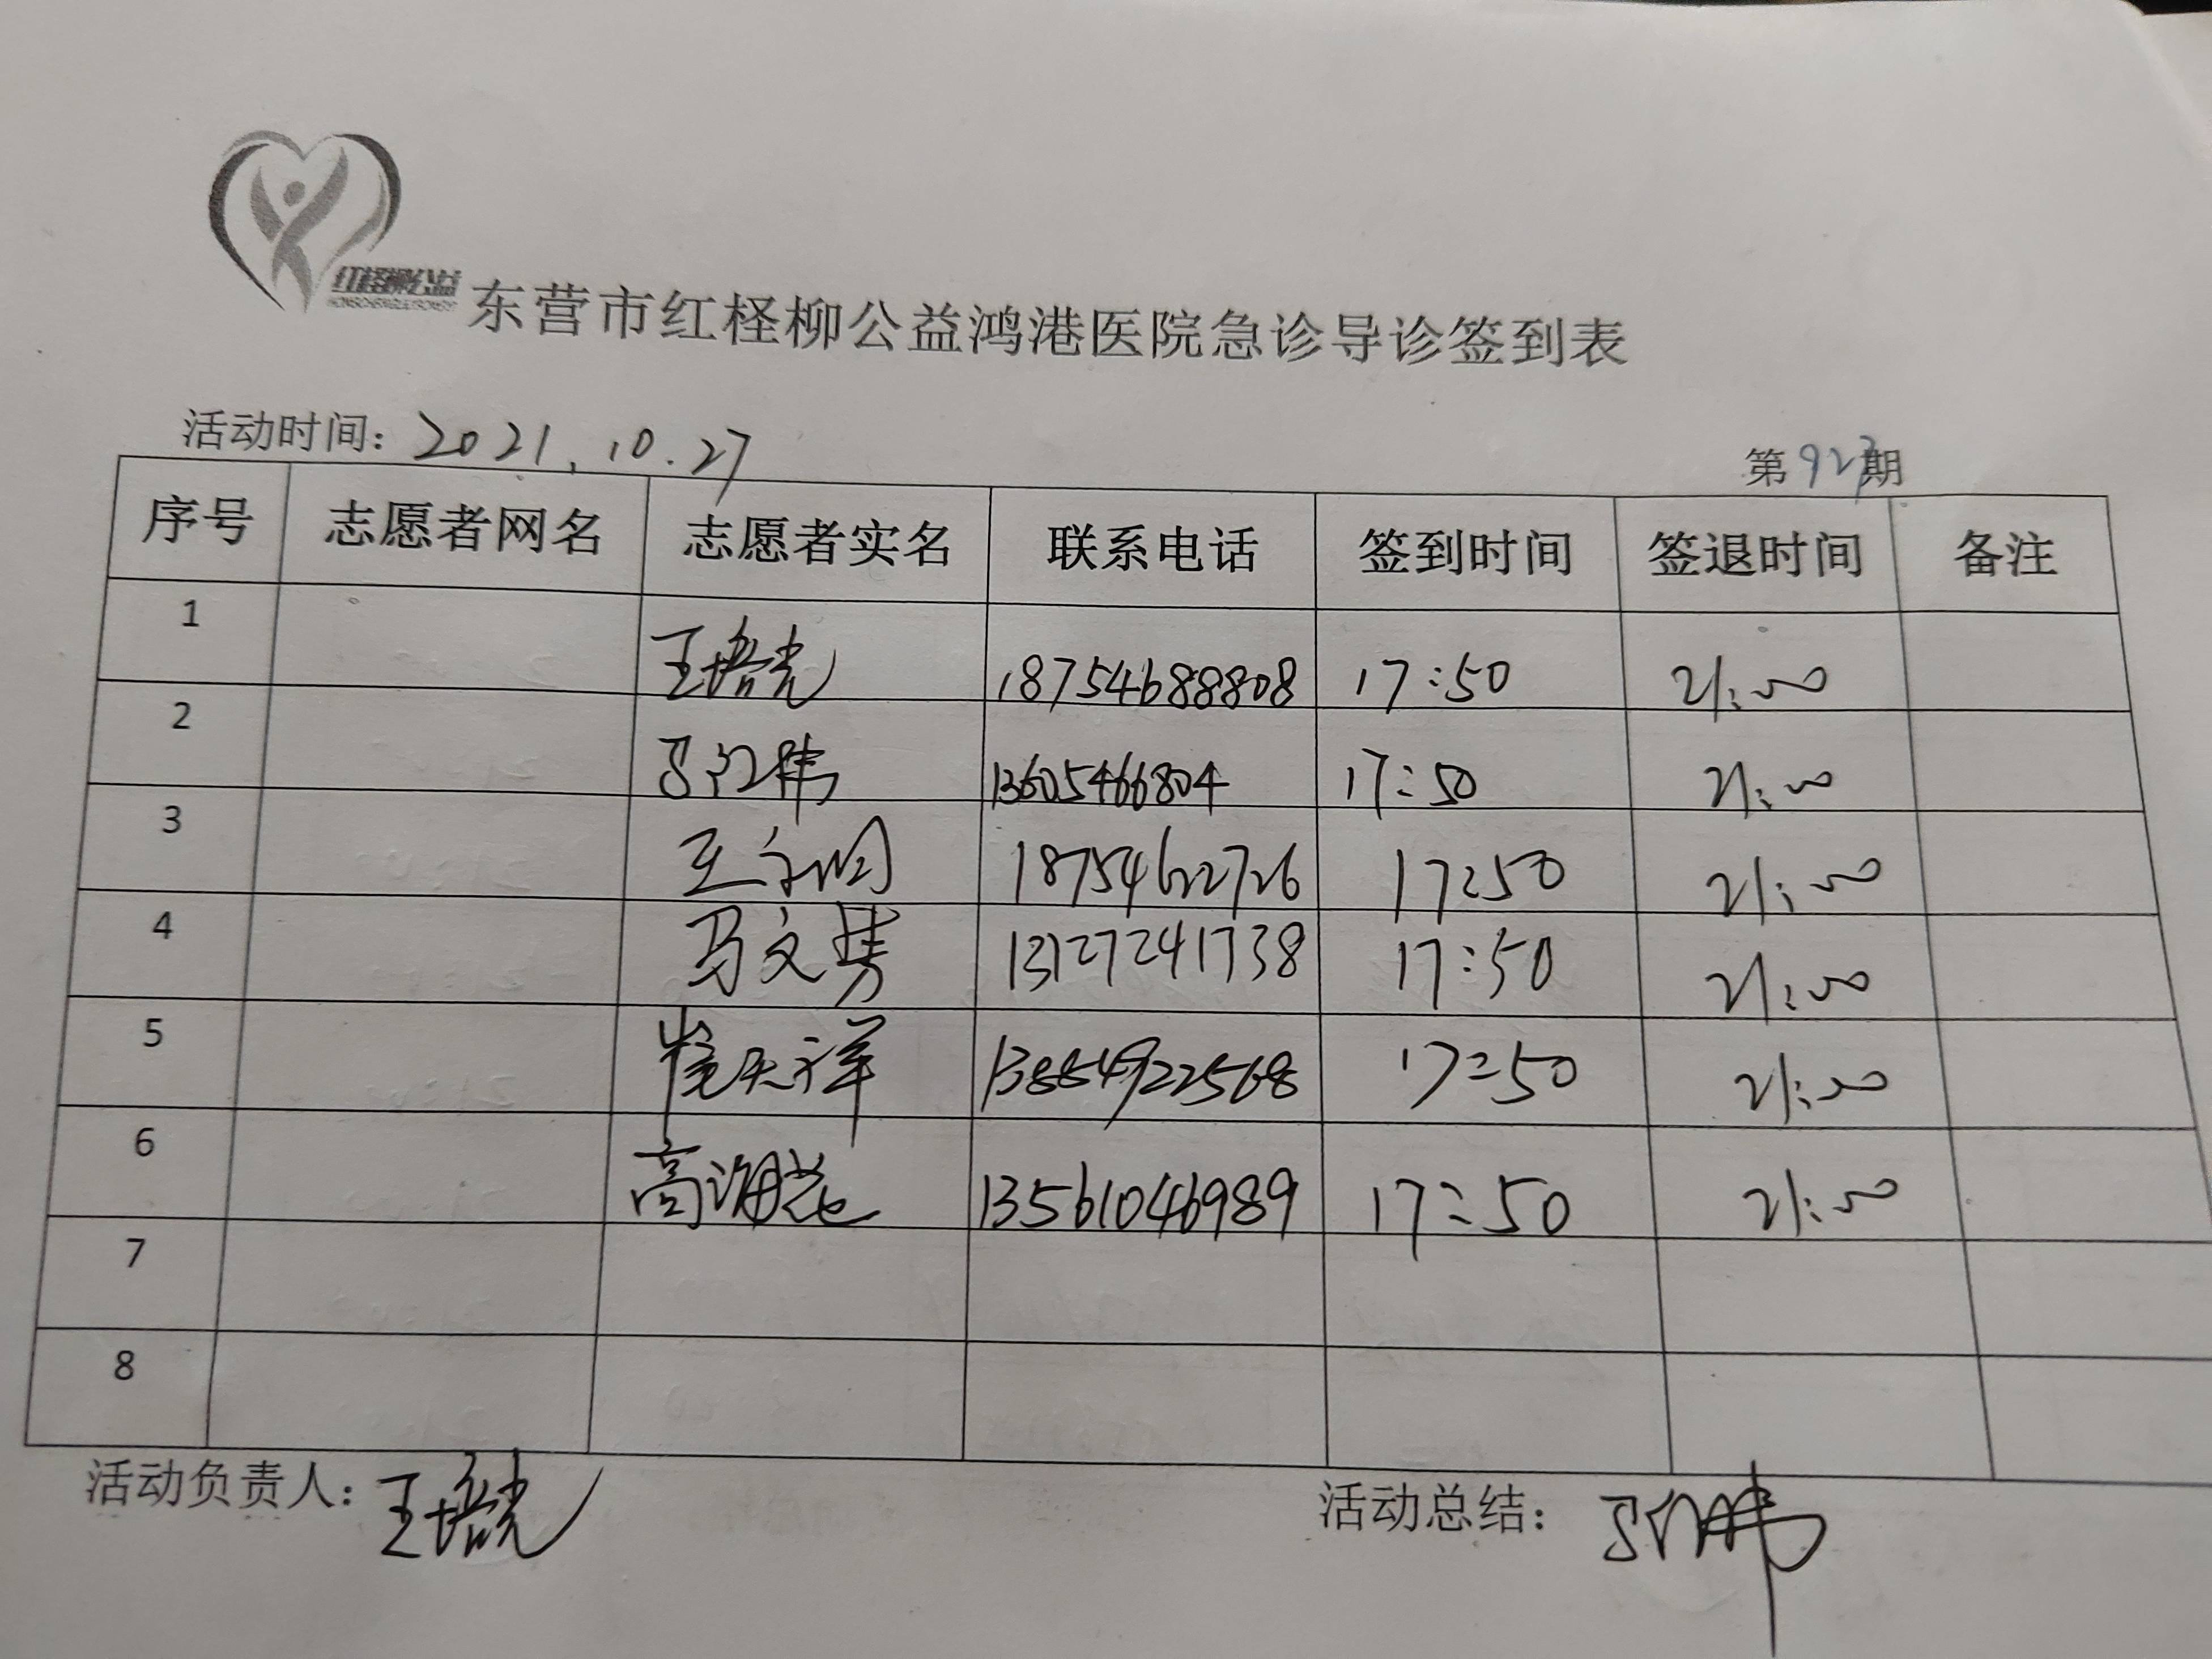 红柽柳公益
东营市红柽柳公益鸿港医院急诊导诊签到表
活动时间：2021.10.27
第923期
序号 志愿者网名 志愿者实名 联系电话 签到时间 签退时间 备注
1 王培光 18754688808 17:50 21:00
2 13605466804 17:50 21:00
3 18754622726 17:50 21:00
4 马文隽 13127241738 17:50 21:00
5 崔天祥 13884922568 17:50 21:00
6 高海花 13561046989 17:50 21:00
7
8
活动负责人：王培光
活动总结：